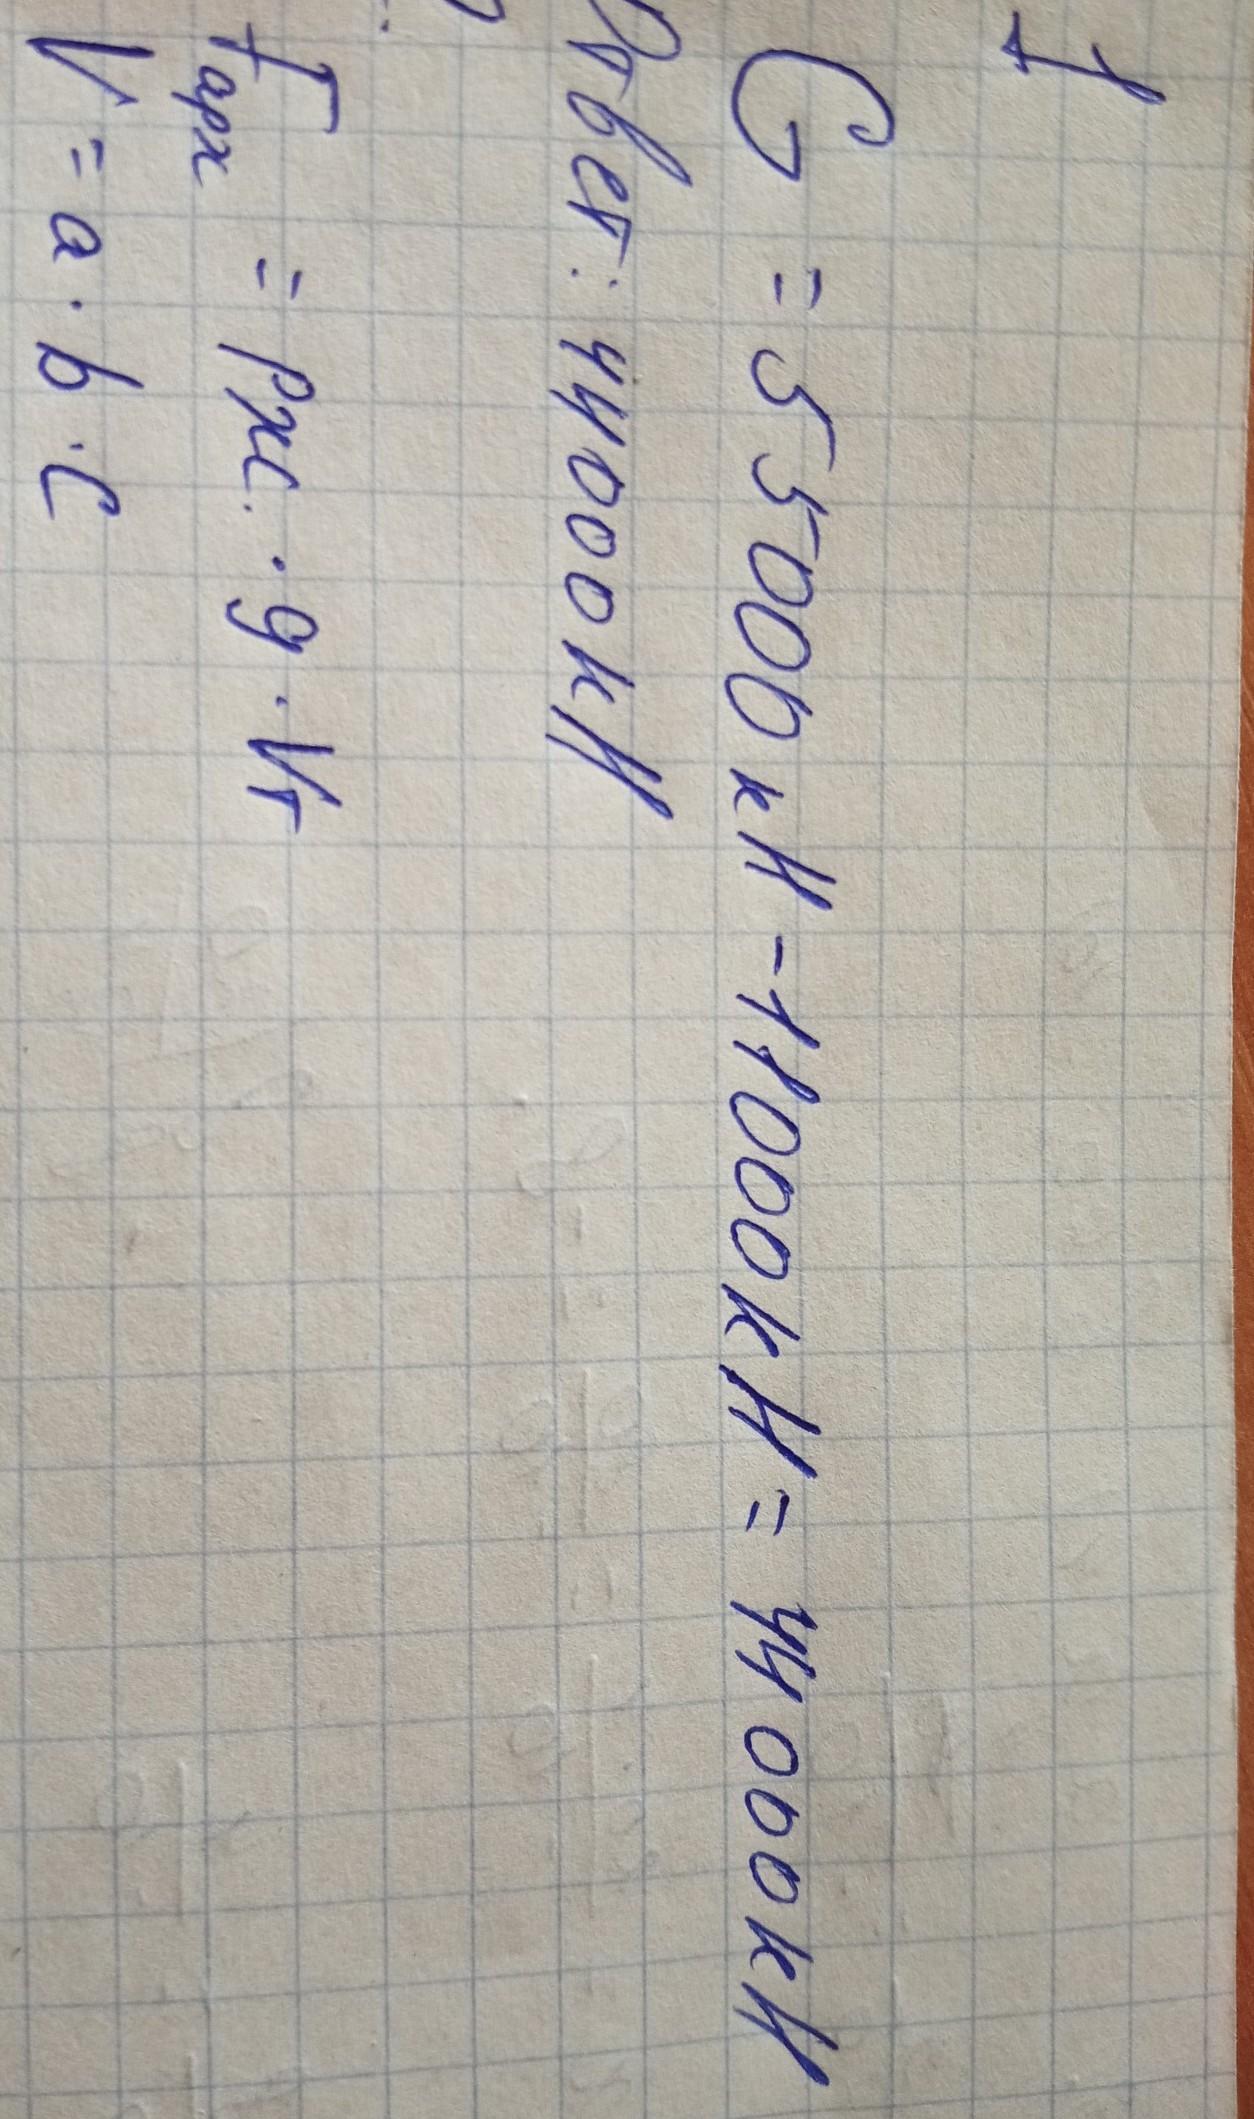 1
G = 55000кН - 11000кН = 44000кН
Ответ: 44000кН
Fарх = ρж. · g · Vт
V = a · b · c